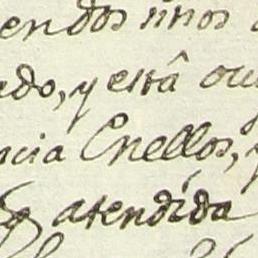 endos unos
ado, y está
ncia Enellos, y
atendida